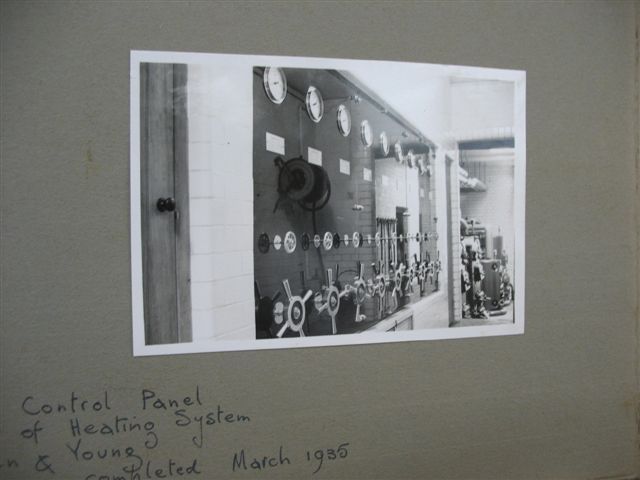 Control Panel
of Heating System
& Young
completed March 1935